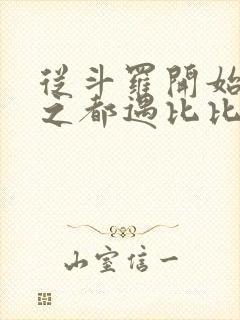 從斗羅開始
之都遇比比
山室信一